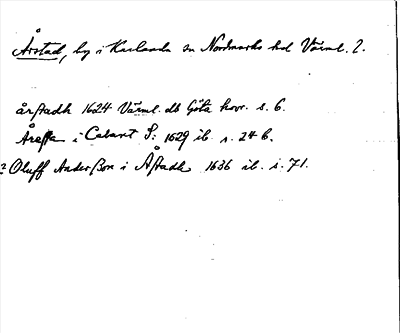 Årstad, by i Karlanda sn Nordmarks hd Värml. l.
årstadh 1624 Värml. db Göta hovr. s. 6.
Åresta i Cabant S: 1629 ib. s. 24 b.
? Oluff Anderßon i Åstadh 1636 ib. s. 71.